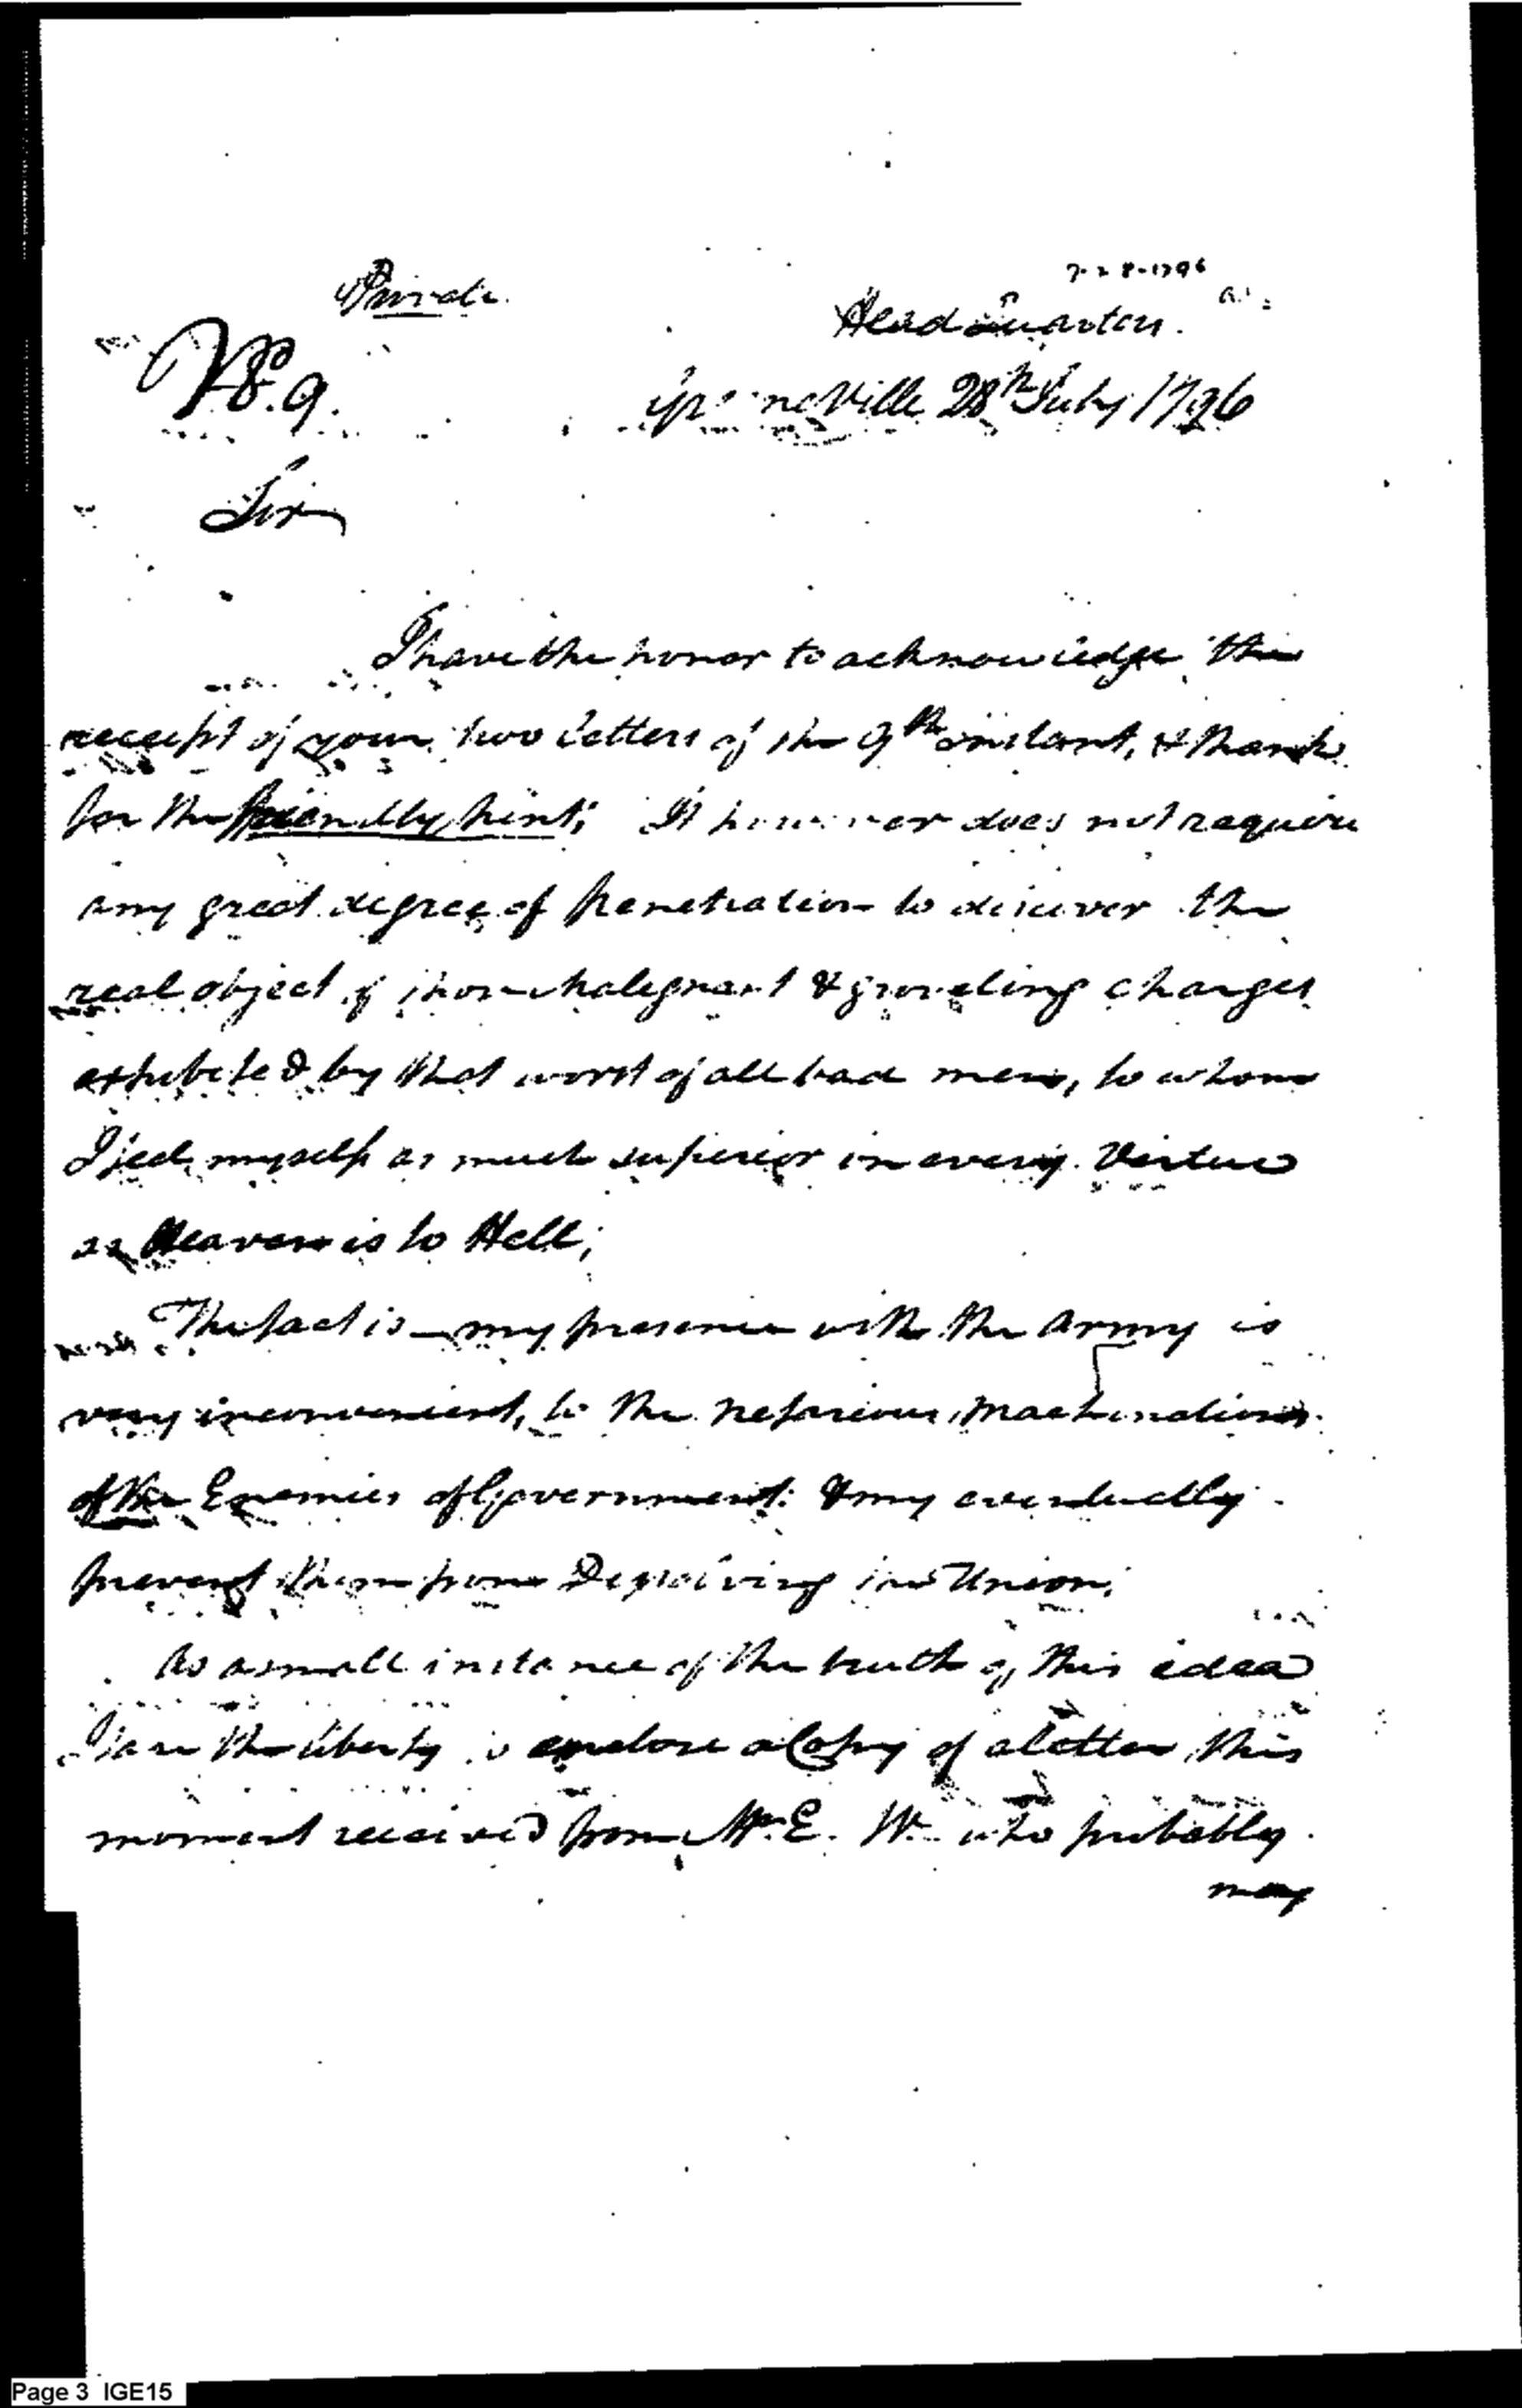 7-28-1796
Private
Head Quarters
No. 9.
GreeneVille 28th July 1796
Sir
I have the honor to acknowledge the
receipt of your two letters of the 9th instant, & thank
for the friendly hint; It however does not require
any great degree of penetration to discover the
real object of those malegnant & groveling charges
exhibited by that worst of all bad men, to whom
I feel myself as much superior in every Virtue
as Heaven is to Hell;
The fact is — my presence with the Army is
very inconvenient, to the nefarious machinations
of the Enemies of Government: & may eventually
prevent them from Dissolving the Union;
As a small instance of the truth of this idea
I take the liberty to enclose a Copy of a letter this
moment received from Mr. E. W. who probably
may
Page 3 IGE15